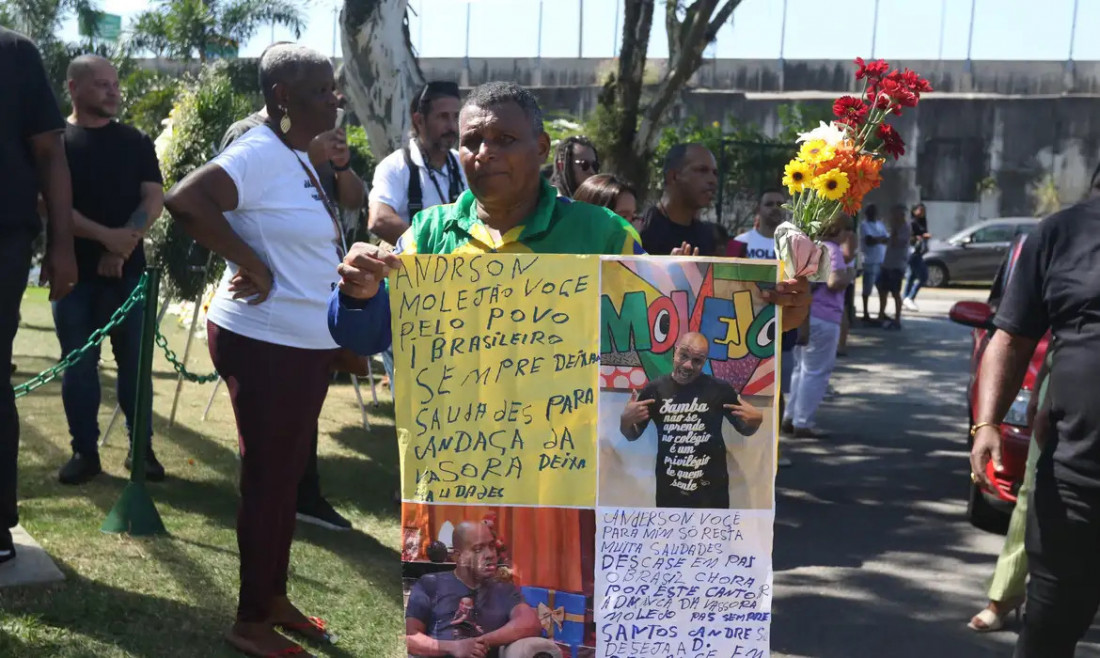 ANDRSON
MOLEJÃO VOCE
PELO POVO
BRASILEIRO
SEMPRE DEIXAN
SAUDADES PARA
ANDAÇA DA
VASORA DEIXA
SAUDADES
MOLEJO
Samba
não se
aprende
no colégio
é um
privilégio
de quem
sente
ANDERSON VOCE
PARA MIM SÓ RESTA
MUITA SAUDADES
DESCASE EM PAS
O BRASIL CHORA
POR ESTE CANTOR
DA VASSORA
MOLEJO PAS SEMPRE
SANTOS ANDRE
DESEJA A D.
EM
MOLE